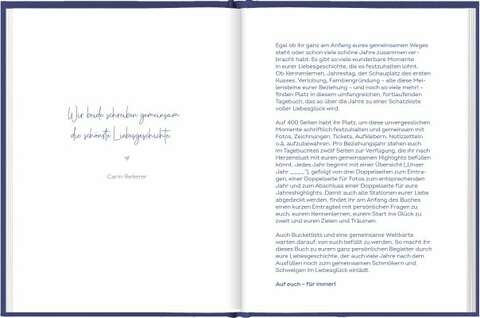 Wir beide schreiben gemeinsam
die schönste Liebesgeschichte
Carin Reiterer
Egal ob ihr ganz am Anfang eures gemeinsamen Weges
steht oder schon viele schöne Jahre zusammen ver-
bracht habt. Es gibt so viele wunderbare Momente
in eurer Liebesgeschichte, die es festzuhalten lohnt.
Ob Kennenlernen, Jahrestag, der Schauplatz des ersten
Kusses, Verlobung, Familiengründung – alle diese Mei-
lensteine eurer Beziehung – und noch so viele mehr! –
finden Platz in diesem umfangreichen, fortlaufenden
Tagebuch, das so über die Jahre zu einer Schatzkiste
voller Liebesglück wird.
Auf 400 Seiten habt ihr Platz, um diese unvergesslichen
Momente schriftlich festzuhalten und gemeinsam mit
Fotos, Zeichnungen, Tickets, Aufklebern, Notizzetteln
o.ä. aufzubewahren. Pro Beziehungsjahr stehen euch
im Tagebuchteil zwölf Seiten zur Verfügung, die ihr nach
Herzenslust mit euren gemeinsamen Highlights befüllen
könnt. Jedes Jahr beginnt mit einer Übersicht („Unser
Jahr ____“), gefolgt von drei Doppelseiten zum Eintra-
gen, einer Doppelseite für Fotos zum entsprechenden
Jahr und zum Abschluss einer Doppelseite für eure
Jahreshighlights. Damit auch alle Stationen eurer Liebe
abgedeckt werden, findet ihr am Anfang des Buches
einen kurzen Eintragteil mit persönlichen Fragen zu
euch, eurem Kennenlernen, eurem Start ins Glück zu
zweit und euren Zielen und Träumen.
Auch Bucketlists und eine gemeinsame Weltkarte
warten darauf, von euch befüllt zu werden. So macht ihr
dieses Buch zu eurem ganz persönlichen Begleiter durch
eure Liebesgeschichte, der auch viele Jahre nach dem
Ausfüllen noch zum gemeinsamen Schmökern und
Schwelgen im Liebesglück einlädt.
Auf euch – für immer!